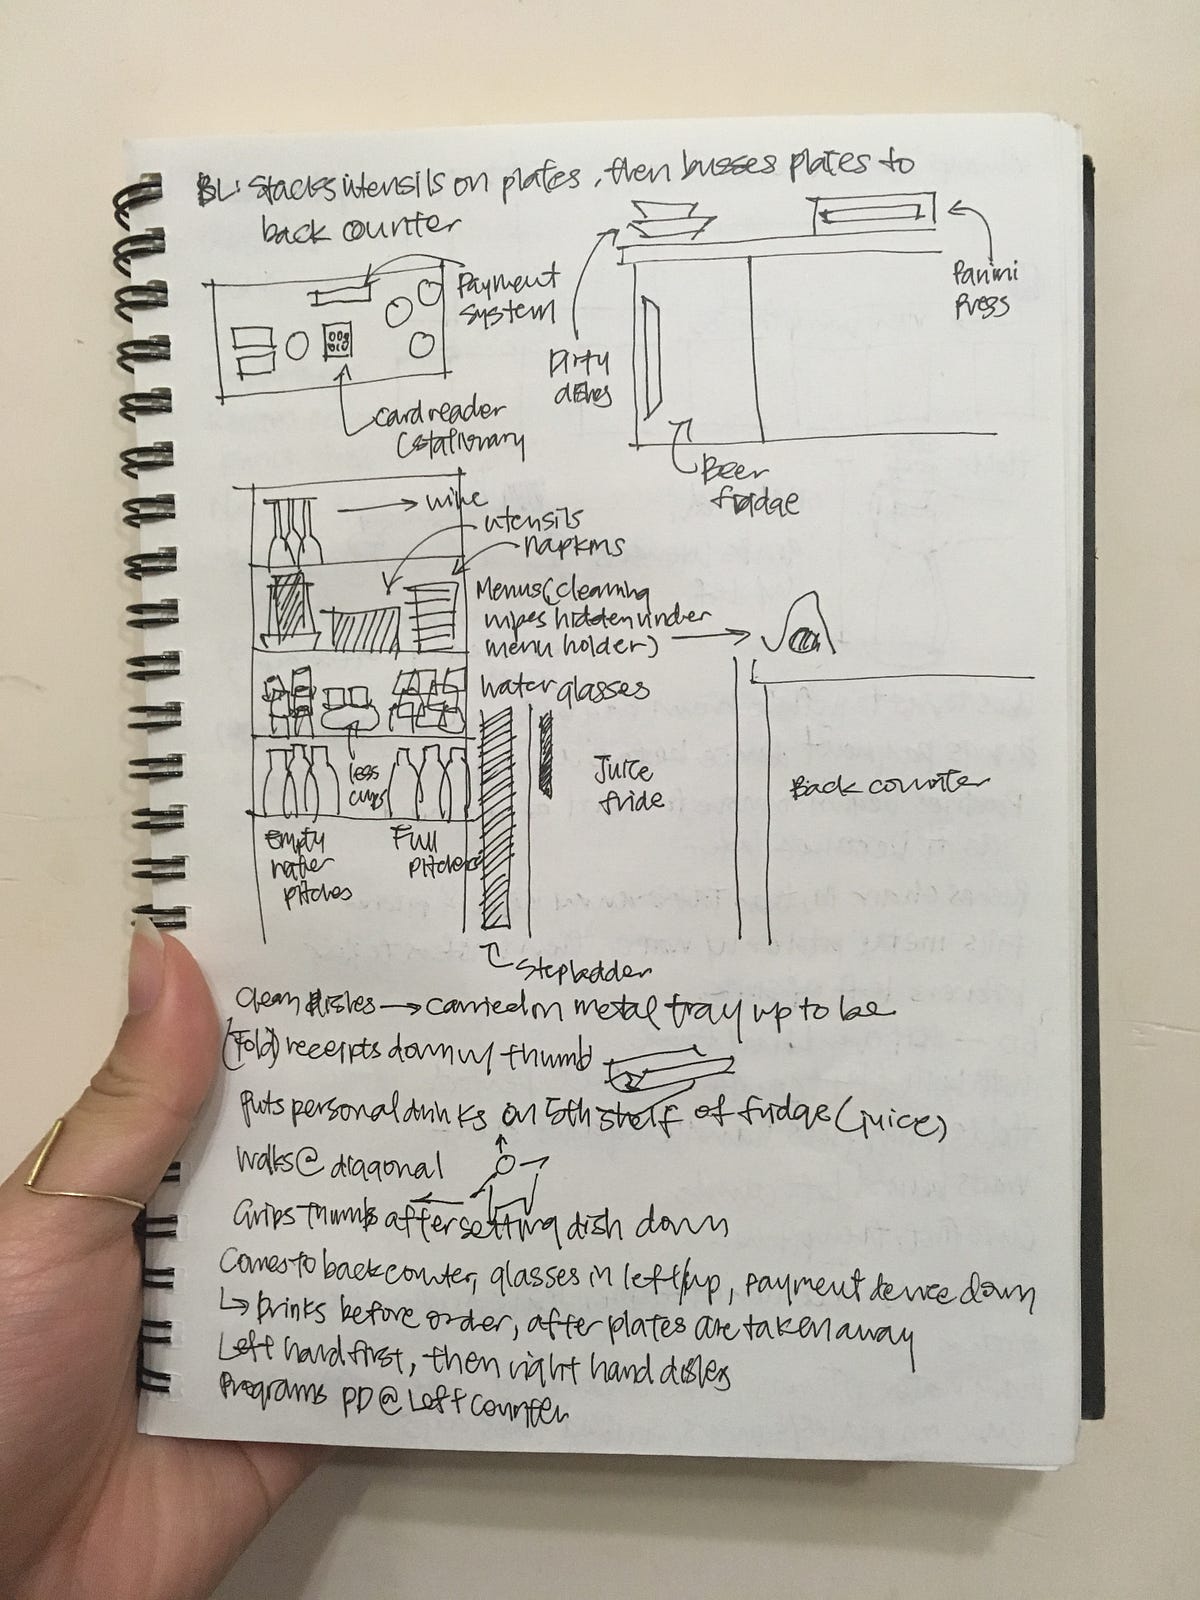 BL: Stacks utensils on plates, then busses plates to
back counter
Payment
system
Panini
Press
Dirty
dishes
card reader
(stationary
Beer
fridge
wine
utensils
napkins
Menus (cleaning
wipes hidden under
menu holder)
water glasses
less
cups
Juice
fride
Back counter
Empty
water
pitches
Full
pitchers
Stepladder
Clean dishes → carried on metal tray up to be
(Fold) receipts down w/ thumb
Puts personal drinks on 5th shelf of fridge (juice)
Walks @ diagonal
Grips thumbs after setting dish down
Comes to back counter, glasses in left/up, payment device down
↳ Drinks before order, after plates are taken away
Left hand first, then right hand dishes
Programs PD @ Left counter